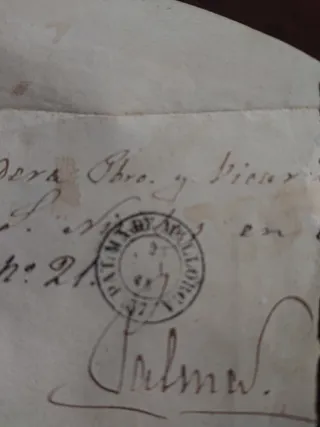 dera Pbro. y Vicar
S. Nicolas en
nº 21.
PALMA DE MALLORCA
Palma.